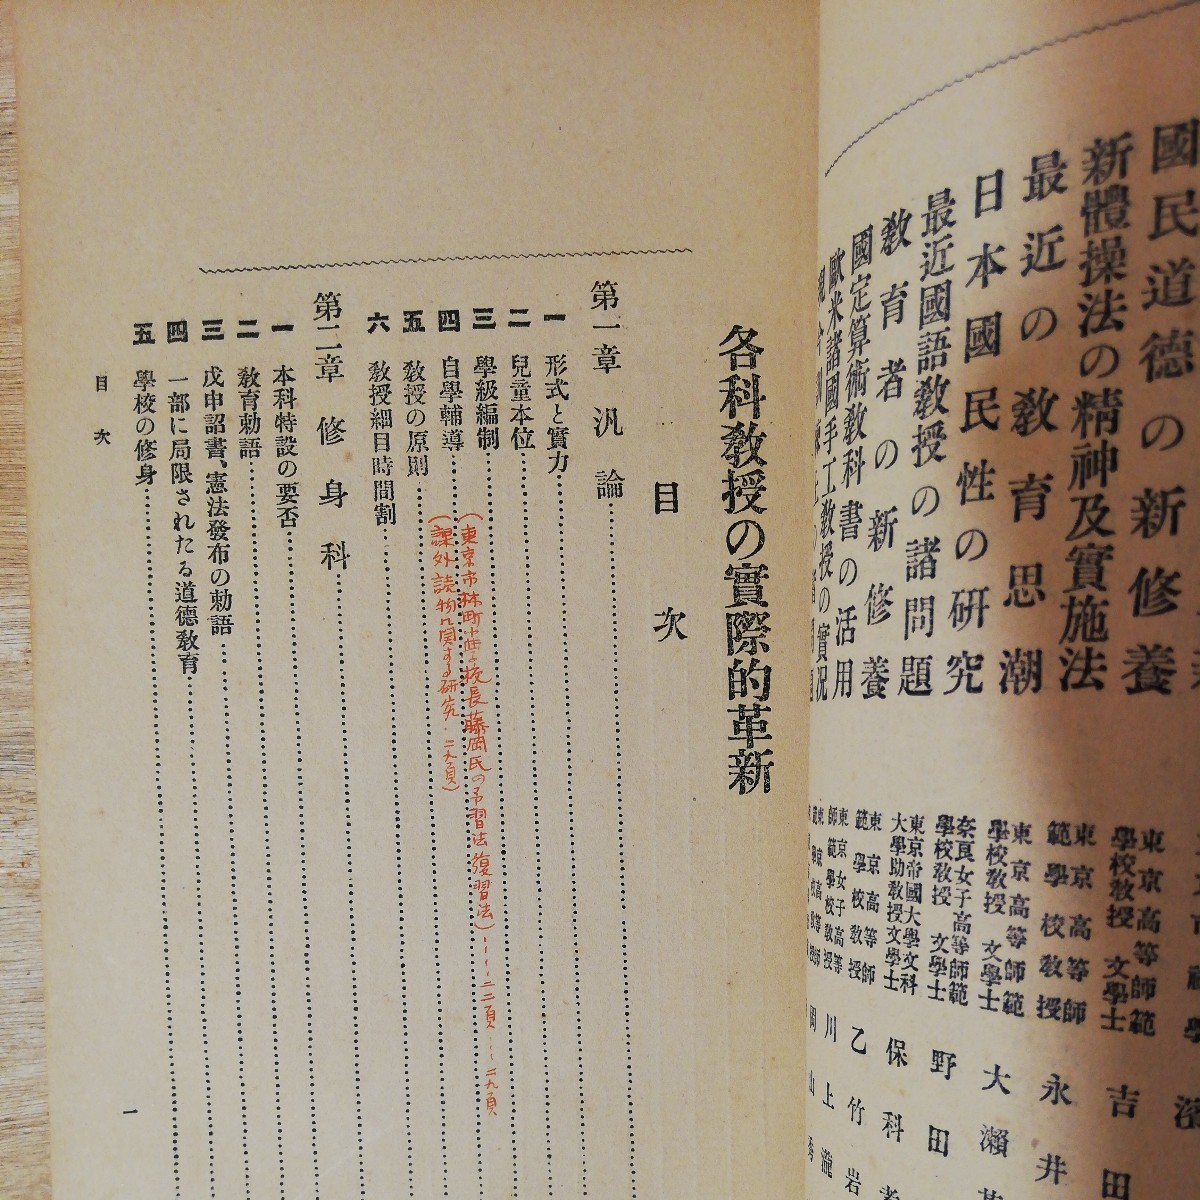 國民道德の新修養
新體操法の精神及實施法
最近の敎育思潮
日本國民性の研究
最近國語敎授の諸問題
敎育者の新修養
國定算術敎科書の活用
歐米諸國手工敎授の實況
東京高等師範
學校敎授 文學士
吉田
東京高等師
範學校敎授
永井
東京高等師範
學校敎授 文學士
大瀨
奈良女子高等師範
學校敎授 文學士
野田
東京帝國大學文科
大學助敎授文學士
保科
東京高等師
範學校敎授
乙竹岩
東京女子高等
師範學校敎授
川上瀧
各科敎授の實際的革新
目次
第一章 汎論
一 形式と實力
二 兒童本位
三 學級編制
四 自學輔導
(東京市林町小学校長藤岡氏の予習法復習法)……二二頁……二九頁
(課外読物に関する研究・二九頁)
五 敎授の原則
六 敎授細目時間割
第二章 修身科
一 本科特設の要否
二 敎育勅語
三 戊申詔書、憲法發布の勅語
四 一部に局限されたる道德敎育
五 學校の修身
目次
一